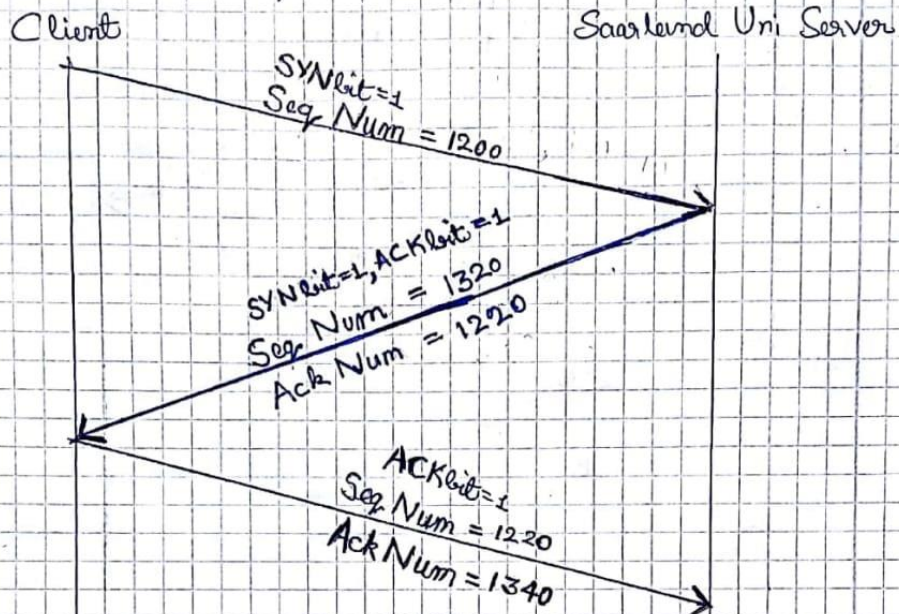 Client
Saarland Uni Server
SYNbit=1
Seq Num = 1200
SYNbit=1, ACKbit=1
Seq Num = 1320
Ack Num = 1220
ACKbit=1
Seq Num = 1220
Ack Num = 1340